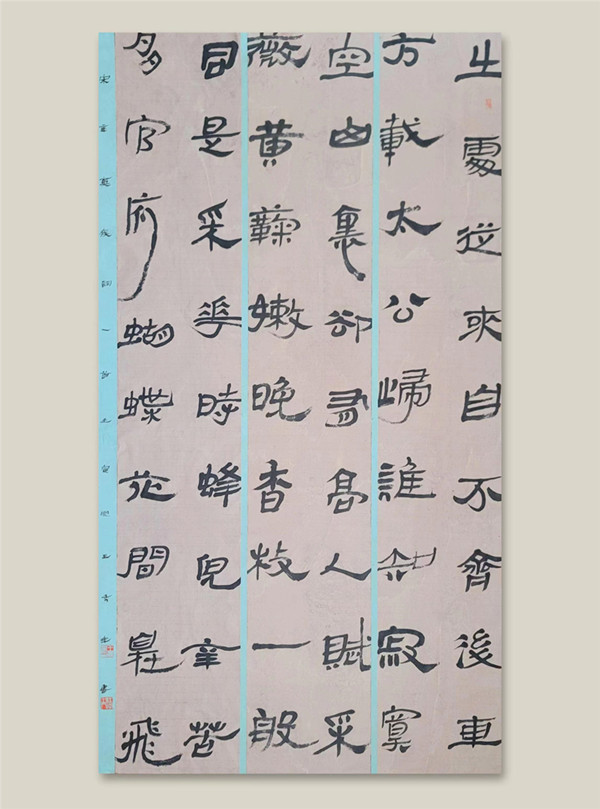 出處從來自不齊後車
方載太公歸誰知寂寞
空山裏卻有高人賦采
薇黃蘜嫩晚香枝一般
同是采華時蜂兒辛苦
多官府蝴蝶花間自在飛
宋辛棄疾詞一首壬寅